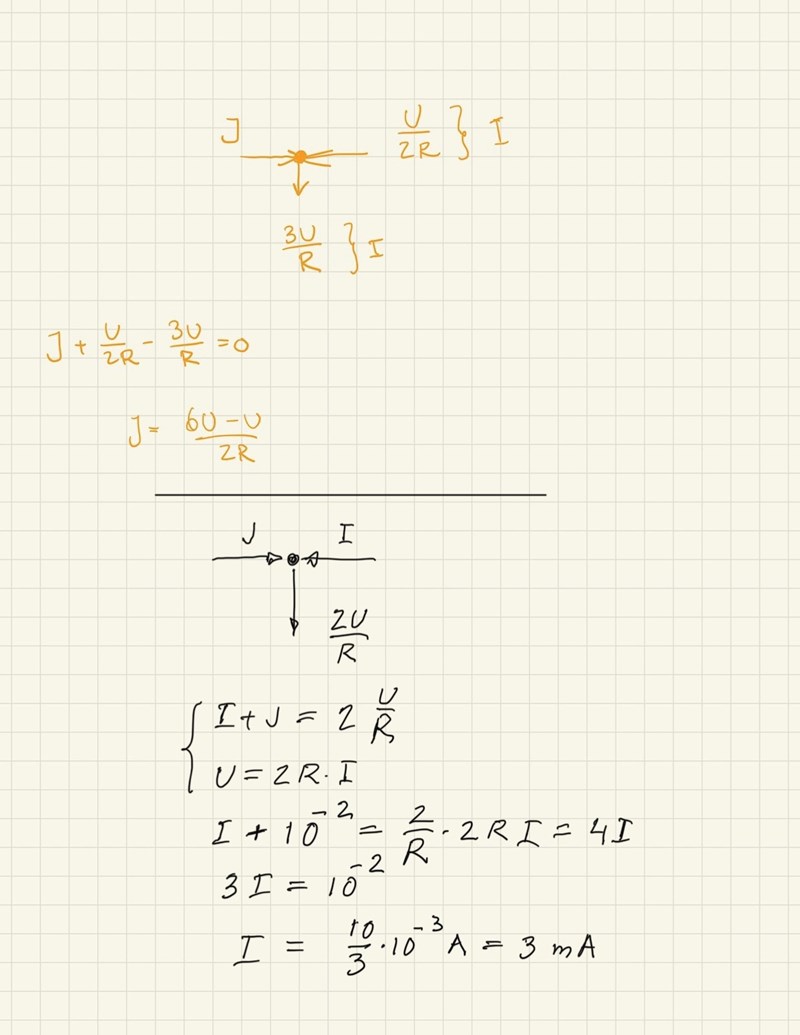 J U/2R } I
3U/R } I
J + U/2R - 3U/R = 0
J = 6U - U/2R
J I
2U/R
{ I + J = 2 U/R
U = 2R · I
I + 10⁻² = 2/R · 2RI = 4I
3I = 10⁻²
I = 10/3 · 10⁻³ A = 3 mA